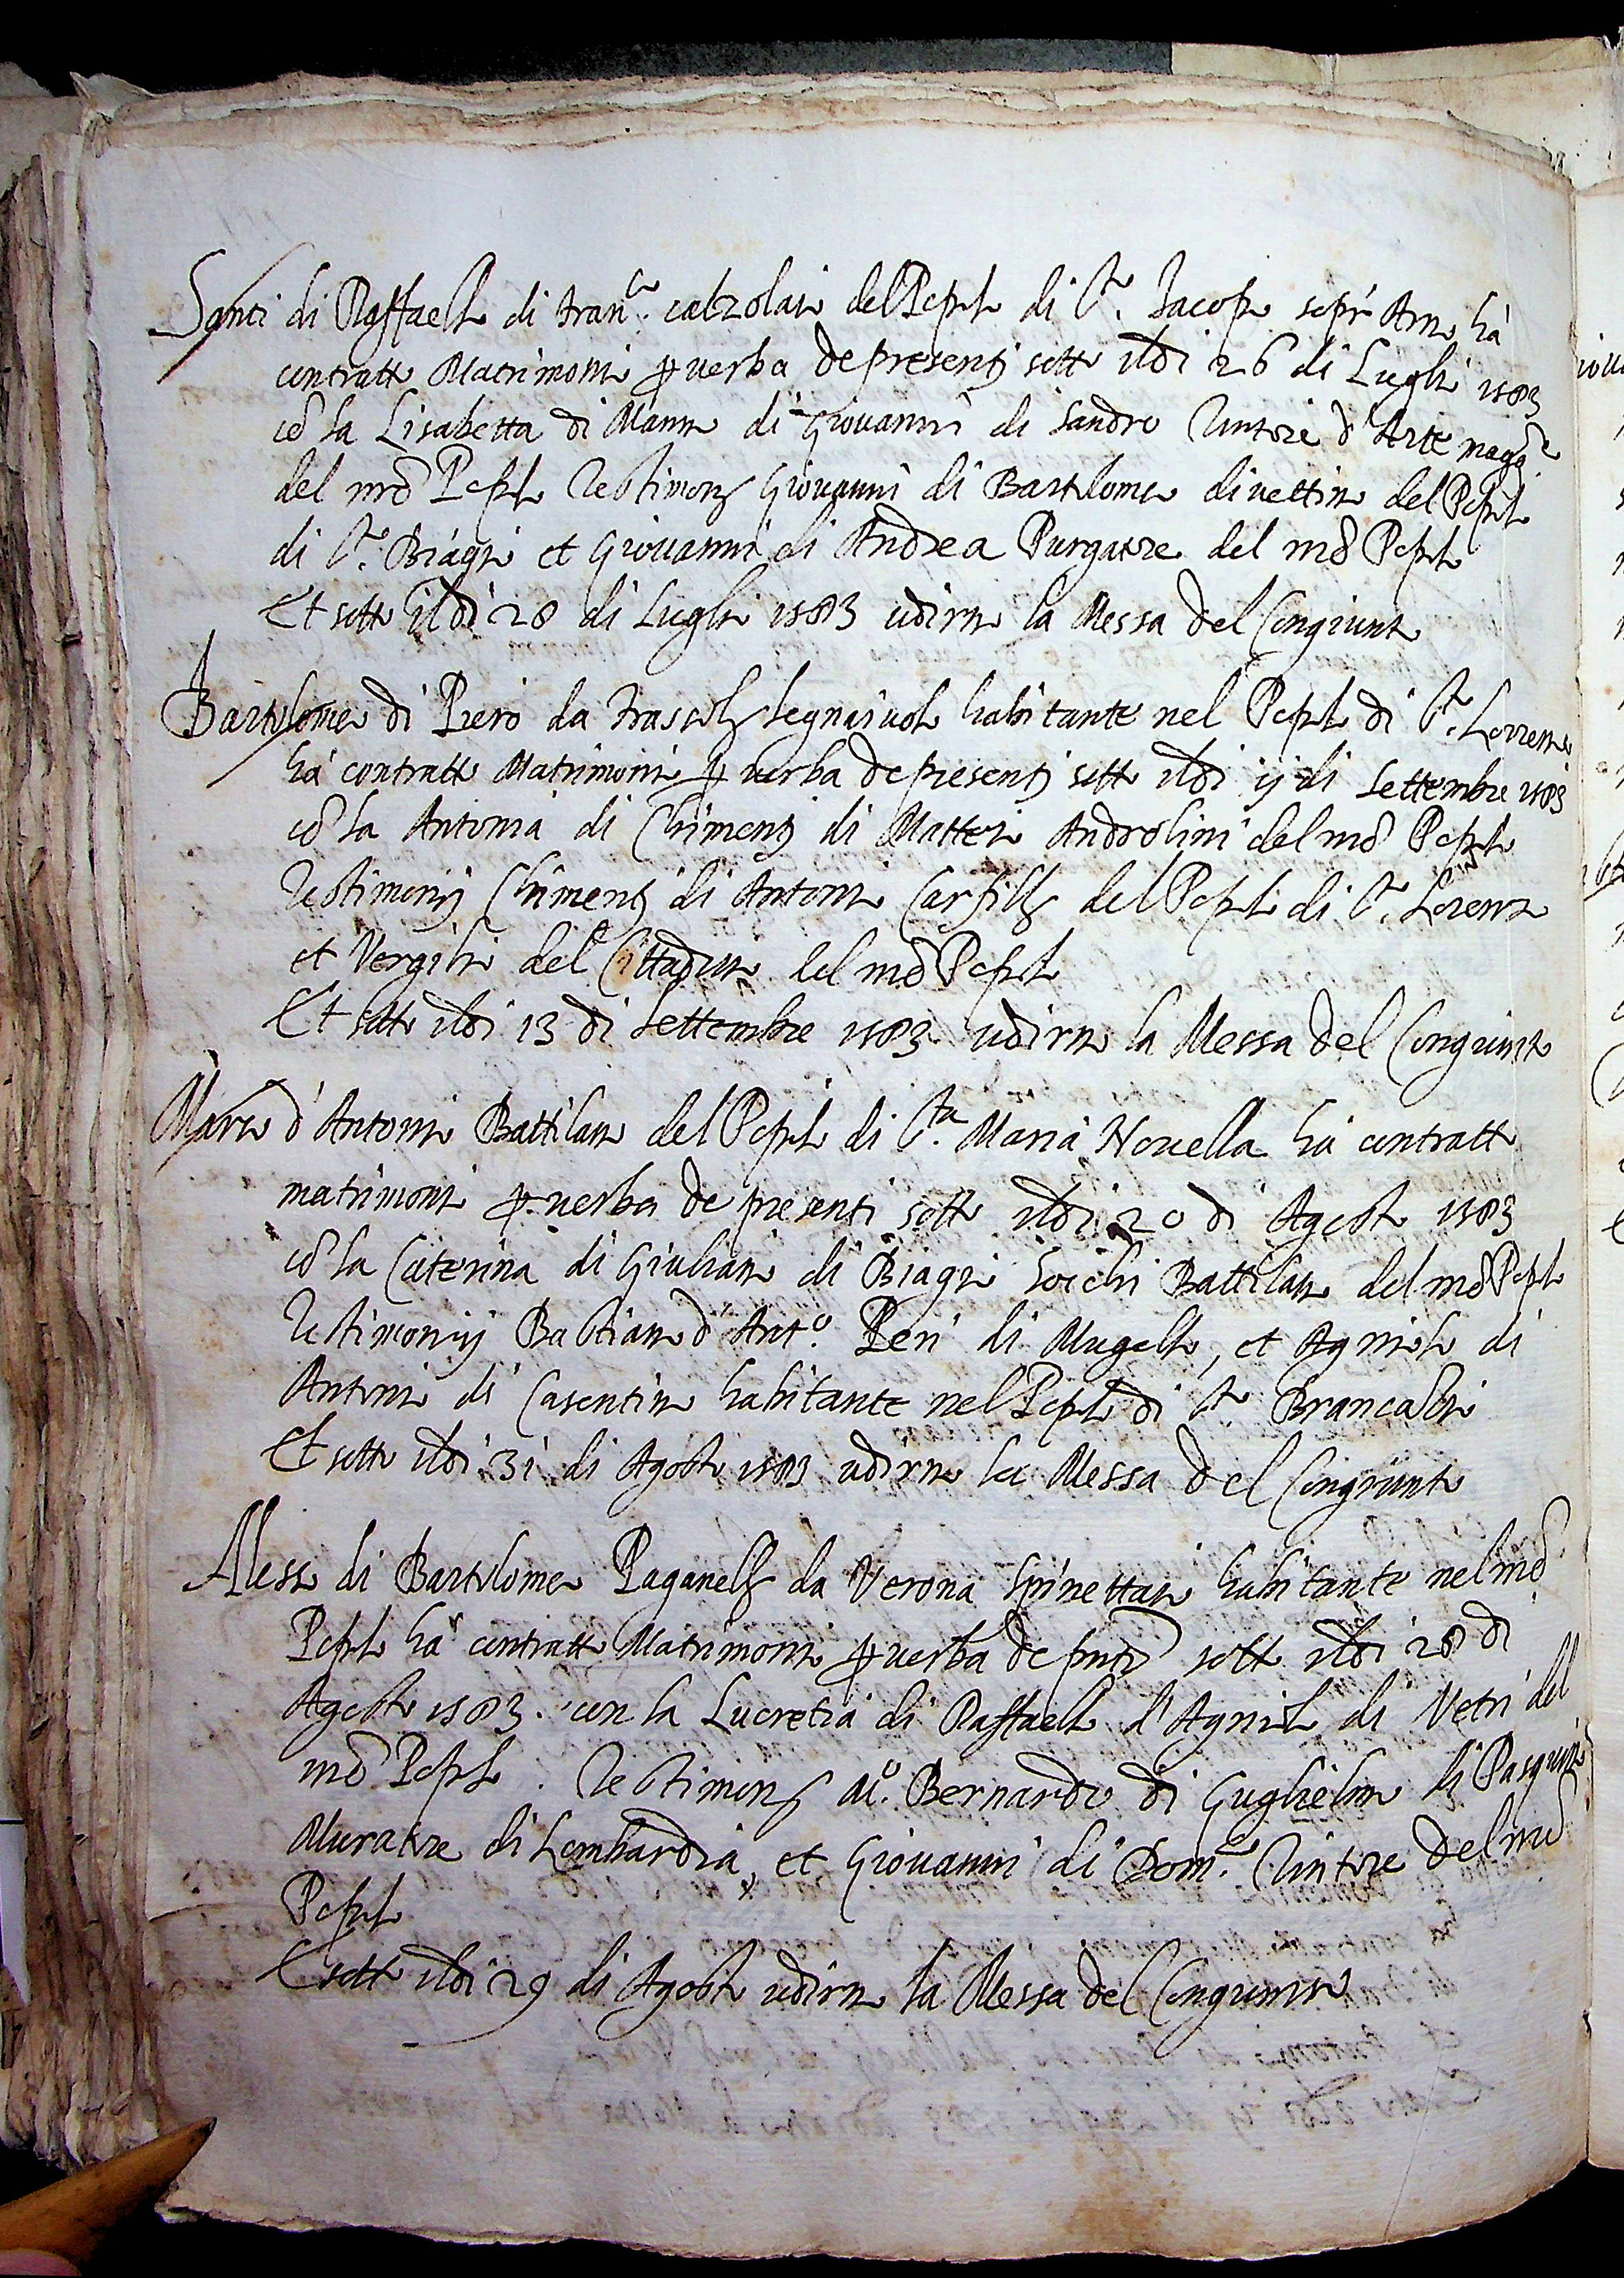 Santi di Raffaello di Fran.co calzolaio del Popolo di S.to Iacopo sopr'Arno hà
contratto Matrimonio p verba de presenti sotto il dì 26 di Luglio 1583
cõ la Lisabetta di Manno di Giovanni di Sandro Tintore d'Arte magg.re
del mõ Popolo Testimonij Giovanni di Bartolomeo divettino del Popolo
di S.to Biagio et Giovanni di Andrea Purgatore del mõ Popolo
Et sotto il dì 28 di Luglio 1583 udirno la Messa del Congiunto
Bartolomeo di Piero da legnaiuolo habitante nel Popolo di S.to Lorenzo
hà contratto Matrimonio p verba de presenti sotto il dì ij di Settembre 1583
cõ la Antonia di Chimenti di Matteo Androlini del mõ Popolo
Testimonij Chimenti di Antonio del Popolo di S.to Lorenzo
et Vergilio del Cittadino del mõ Popolo
Et sotto il dì 13 di Settembre 1583 udirno la Messa del Congiunto
Marco d'Antonio Battilano del Popolo di S.ta Maria Novella hà contratto
matrimonio p verba de presenti sotto il dì 20 di Agosto 1583
cõ la Caterina di Giuliano di Biagio Battilano del mõ Popolo
Testimonij Bastiano d'Ant.o Peri di Mugello, et Agnolo di
Antonio di Casentino habitante nel Popolo di S.to Brancatio
Et sotto il dì 31 di Agosto 1583 udirno la Messa del Congiunto
Aless.o di Bartolomeo Paganelli da Verona Spinettaio habitante nel mõ
Popolo hà contratto Matrimonio p verba de pnti sotto il dì 28 di
Agosto 1583. con la Lucretia di Raffaello d'Agnolo di Vetri del
mõ Popolo. Testimonij M.o Bernardo di Guglielmo di Pasquino
Muratore di Lombardia, et Giovanni di Dom.co Tintore del mõ
Popolo
E sotto il dì 29 di Agosto udirno la Messa del Congiunto